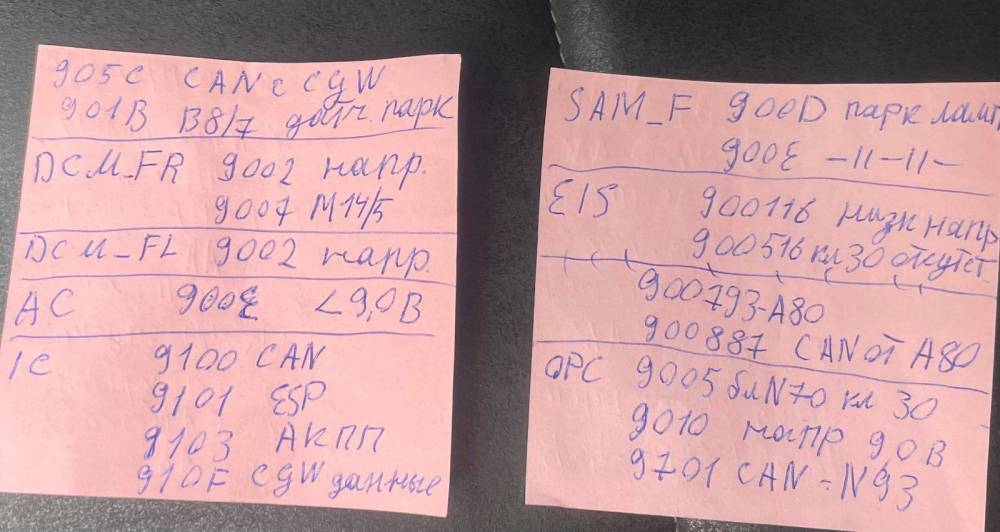 905C CAN с CGW
901B B8/7 датч. парк
DCM_FR 9002 напр.
9007 M14/5
DCM_FL 9002 напр.
AC 900E <9,0В
IC 9100 CAN
9101 ESP
9103 АКПП
910F CGW данные
SAM_F 900D парк ламп
900E –//–//–
EIS 900116 низк напр
900516 кл 30 отсутст
900793-A80
900887 CAN от A80
OPC 9005 бл N70 кл 30
9010 напр 9,0В
9701 CAN - N93